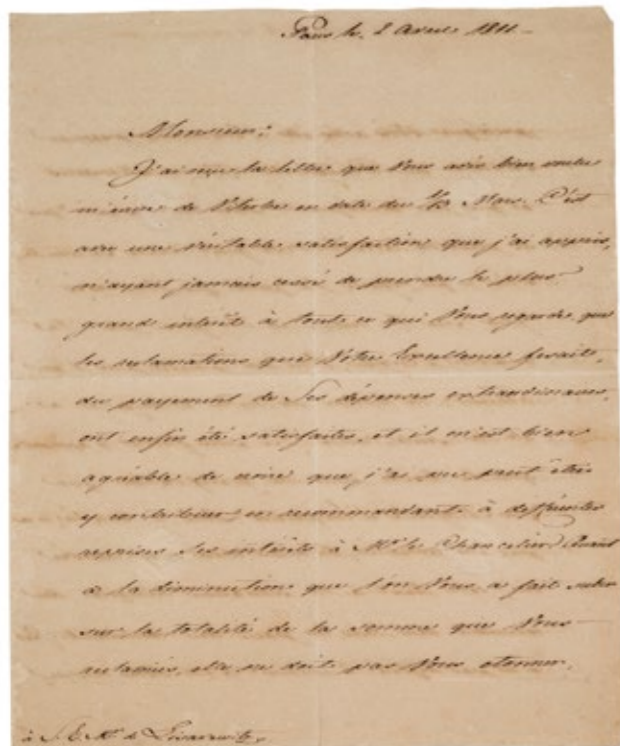 Paris le 2 Avril 1811.
Monsieur,
J'ai reçu la lettre que Vous avés bien voulu
m'écrire de en date du Mars. C'est
avec une véritable satisfaction que j'ai appris,
n'ayant jamais cessé de prendre le plus
grand intérêt à tout ce qui Vous regarde que
les réclamations que Vôtre Excellence faisait,
du payement de Ses dépenses extraordinaires,
ont enfin été satisfaites, et il m'est bien
agréable de croire que j'ai pu peut être
y contribuer en recommandant à différentes
reprises Ses intérêts à Mr. le Chancelier. Quant
à la diminution que l'on Vous a fait subir
sur la totalité de la somme que Vous
réclamiés, elle ne doit pas Vous étonner,
à S. E. Mr. de